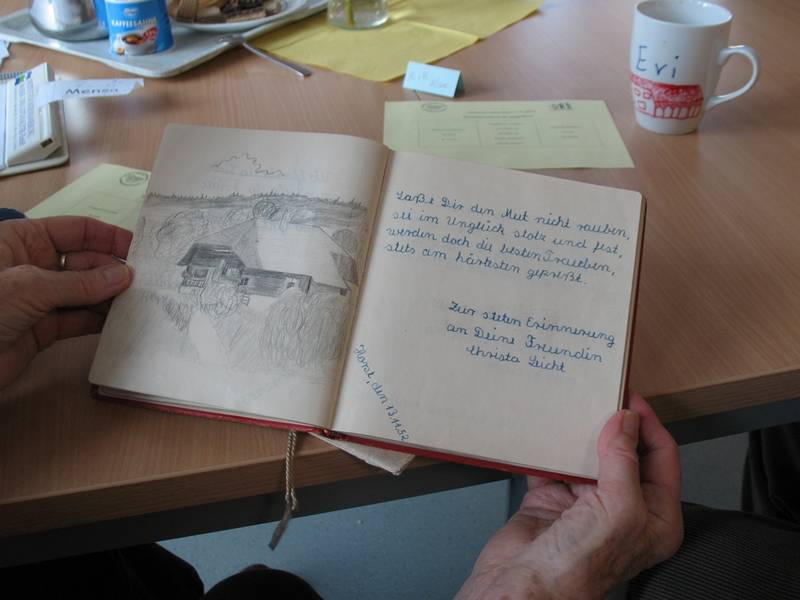 KAFFEESAHNE
Evi
Mensa
Laße Dir den Mut nicht rauben,
sei im Unglück stolz und fest,
werden doch die besten Trauben,
stets am härtesten gepreßt.
Zur steten Erinnerung
an Deine Freundin
Christa Leicht
den 13.11.52